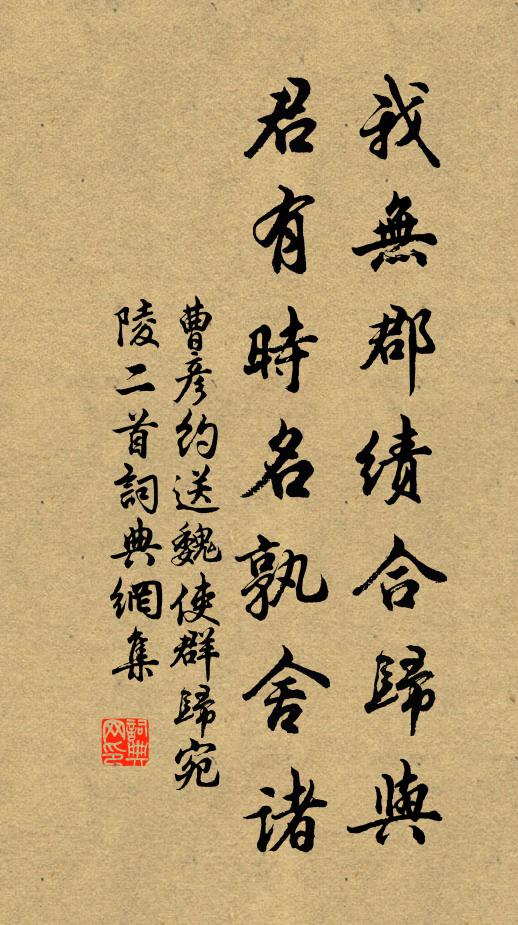 我無郡績合歸與
君有時名孰舍諸
曹彥約送魏使群歸宛
陵二首詞典網集
詞典
网印